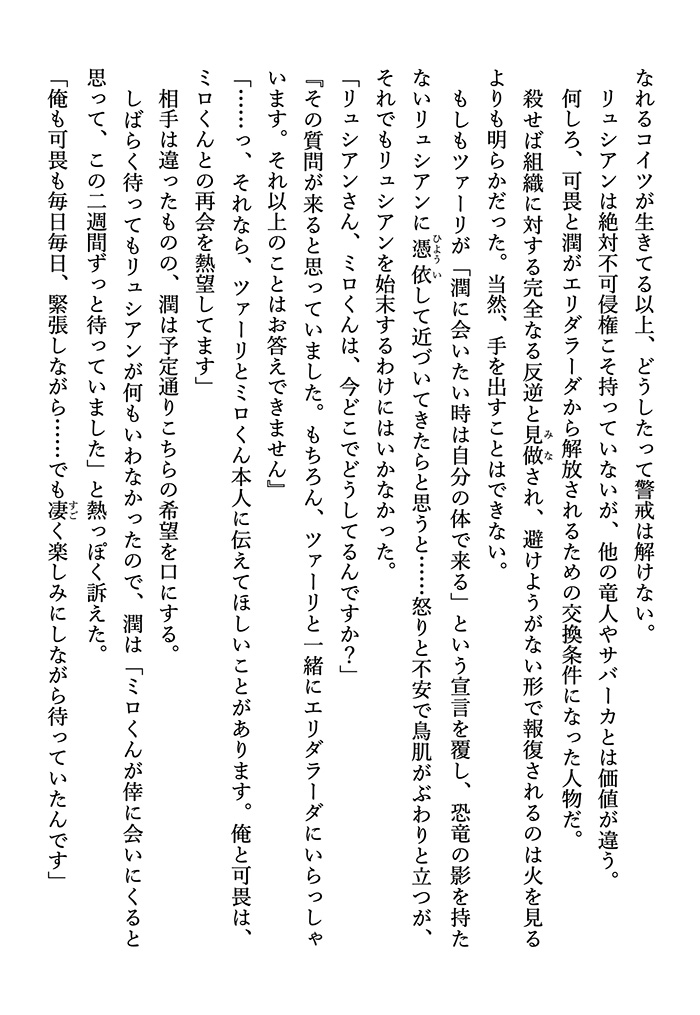 なれるコイツが生きてる以上、どうしたって警戒は解けない。
リュシアンは絶対不可侵権こそ持っていないが、他の竜人やサバーカとは価値が違う。
何しろ、可畏と潤がエリダラーダから解放されるための交換条件になった人物だ。
殺せば組織に対する完全なる反逆と見做され、避けようがない形で報復されるのは火を見る
よりも明らかだった。当然、手を出すことはできない。
もしもツァーリが「潤に会いたい時は自分の体で来る」という宣言を覆し、恐竜の影を持た
ないリュシアンに憑依して近づいてきたらと思うと……怒りと不安で鳥肌がぶわりと立つが、
それでもリュシアンを始末するわけにはいかなかった。
「リュシアンさん、ミロくんは、今どこでどうしてるんですか？」
『その質問が来ると思っていました。もちろん、ツァーリと一緒にエリダラーダにいらっしゃ
います。それ以上のことはお答えできません』
「……っ、それなら、ツァーリとミロくん本人に伝えてほしいことがあります。俺と可畏は、
ミロくんとの再会を熱望してます」
相手は違ったものの、潤は予定通りこちらの希望を口にする。
しばらく待ってもリュシアンが何もいわなかったので、潤は「ミロくんが倖に会いにくると
思って、この二週間ずっと待っていました」と熱っぽく訴えた。
「俺も可畏も毎日毎日、緊張しながら……でも凄く楽しみにしながら待っていたんです」